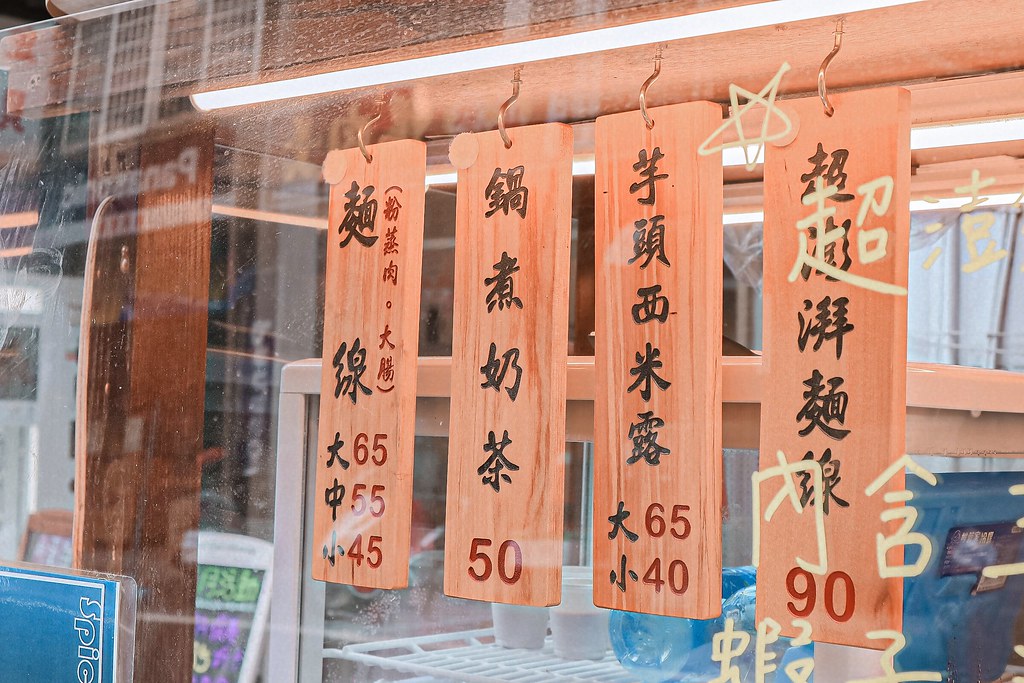 麵線
(粉蒸肉。大腸)
大65
中55
小45
鍋煮奶茶
50
芋頭西米露
大65
小40
超澎湃麵線
90
超
內含
蝦子
Spic